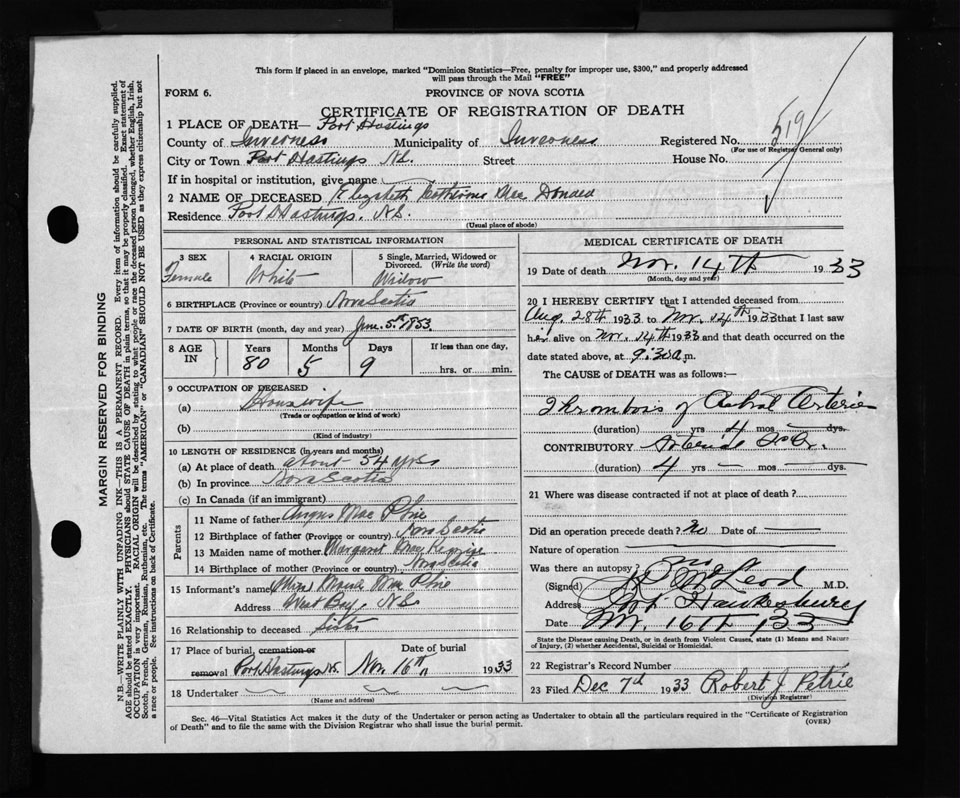 This form if placed in an envelope, marked "Dominion Statistics—Free, penalty for improper use, $300," and properly addressed
will pass through the Mail "FREE"
FORM 6.
PROVINCE OF NOVA SCOTIA
CERTIFICATE OF REGISTRATION OF DEATH
519
1 PLACE OF DEATH— Port Hastings
County of Inverness Municipality of Inverness Registered No.
(For use of Registrar General only)
City or Town Port Hastings N.S. Street House No.
If in hospital or institution, give name
2 NAME OF DECEASED Elizabeth Catherine Mac Donald
Residence Port Hastings, N.S.
(Usual place of abode)
PERSONAL AND STATISTICAL INFORMATION
3 SEX 4 RACIAL ORIGIN 5 Single, Married, Widowed or
Divorced. (Write the word)
Female White Widow
6 BIRTHPLACE (Province or country) Nova Scotia
7 DATE OF BIRTH (month, day and year) June 5th 1853
8 AGE IN Years Months Days If less than one day,
80 5 9 hrs. or min.
9 OCCUPATION OF DECEASED
(a) Housewife
(Trade or occupation or kind of work)
(b)
(Kind of industry)
10 LENGTH OF RESIDENCE (in years and months)
(a) At place of death about 54 yrs
(b) In province Nova Scotia
(c) In Canada (if an immigrant)
Parents
11 Name of father Angus Mac Phie
12 Birthplace of father (Province or country) Nova Scotia
13 Maiden name of mother Margaret Mac Kenzie
14 Birthplace of mother (Province or country) Nova Scotia
15 Informant's name (Miss) Mac Phie
Address West Bay, N.S.
16 Relationship to deceased Sister
17 Place of burial, cremation or Date of burial
removal Port Hastings N.S. Nov. 16th 1933
18 Undertaker
(Name and address)
MEDICAL CERTIFICATE OF DEATH
19 Date of death Nov. 14th 1933
(Month, day and year)
20 I HEREBY CERTIFY that I attended deceased from
Aug. 28th 1933 to Nov. 14th 1933 that I last saw
her alive on Nov. 14th 1933 and that death occurred on the
date stated above, at 9.30 a.m.
The CAUSE of DEATH was as follows:—
Thrombosis of Arteries
(duration) yrs 4 mos days
CONTRIBUTORY Arterio Scl.
(duration) 4 yrs — mos — dys.
21 Where was disease contracted if not at place of death?
Did an operation precede death? No Date of
Nature of operation
Was there an autopsy? No
(Signed) McLeod M.D.
Address Port Hawkesbury
Date Nov. 16th 1933
State the Disease causing Death, or in death from Violent Causes, state (1) Means and Nature
of Injury, (2) whether Accidental, Suicidal or Homicidal.
22 Registrar's Record Number
23 Filed Dec 7th 1933 Robert J. Petrie
(Division Registrar)
Sec. 46—Vital Statistics Act makes it the duty of the Undertaker or person acting as Undertaker to obtain all the particulars required in the "Certificate of Registration
of Death" and to file the same with the Division Registrar who shall issue the burial permit.
(OVER)
MARGIN RESERVED FOR BINDING
N.B.—WRITE PLAINLY WITH UNFADING INK—THIS IS A PERMANENT RECORD. Every item of information should be carefully supplied.
AGE should be stated EXACTLY. PHYSICIANS should STATE CAUSE OF DEATH in plain terms, so that it may be properly classified. Exact statement of
OCCUPATION is very important. RACIAL ORIGIN will be described by stating to what people or race the deceased person belonged, whether English, Irish,
Scotch, French, German, Russian, Ruthenian, etc. The terms "AMERICAN" or "CANADIAN" SHOULD NOT BE USED as they express citizenship but not
a race or people. See instructions on back of Certificate.